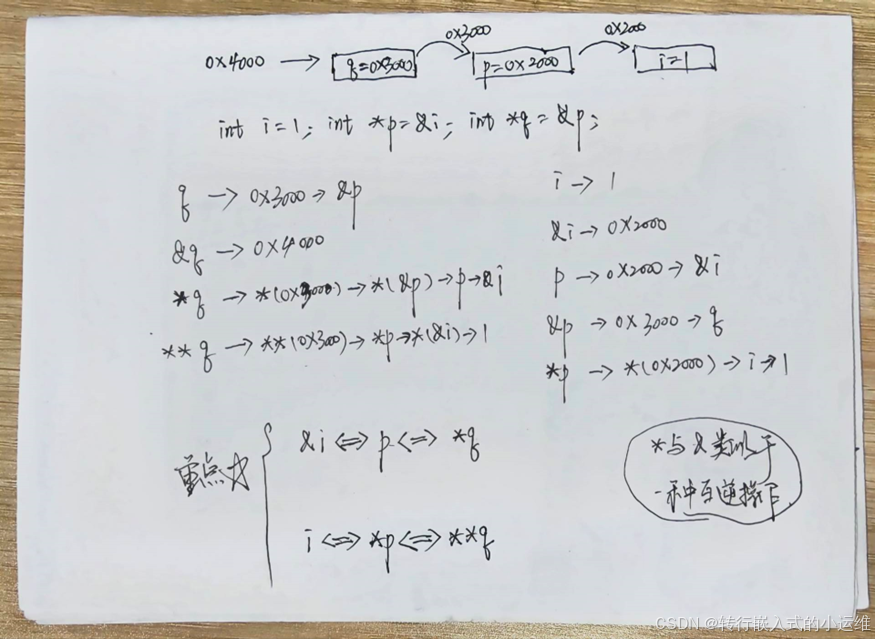 0x3000 0x2000
0x4000 → q=0x3000 p=0x2000 i=1
int i=1; int *p=&i; int *q=&p;
q → 0x3000 → &p
&q → 0x4000
*q → *(0x3000) → *(&p) → p → &i
**q → **(0x3000) → *p → *(&i) → 1
i → 1
&i → 0x2000
p → 0x2000 → &i
&p → 0x3000 → q
*p → *(0x2000) → i → 1
重点
&i <=> p <=> *q
i <=> *p <=> **q
*与&类似于
一种互逆操作
CSDN @转行嵌入式的小运维